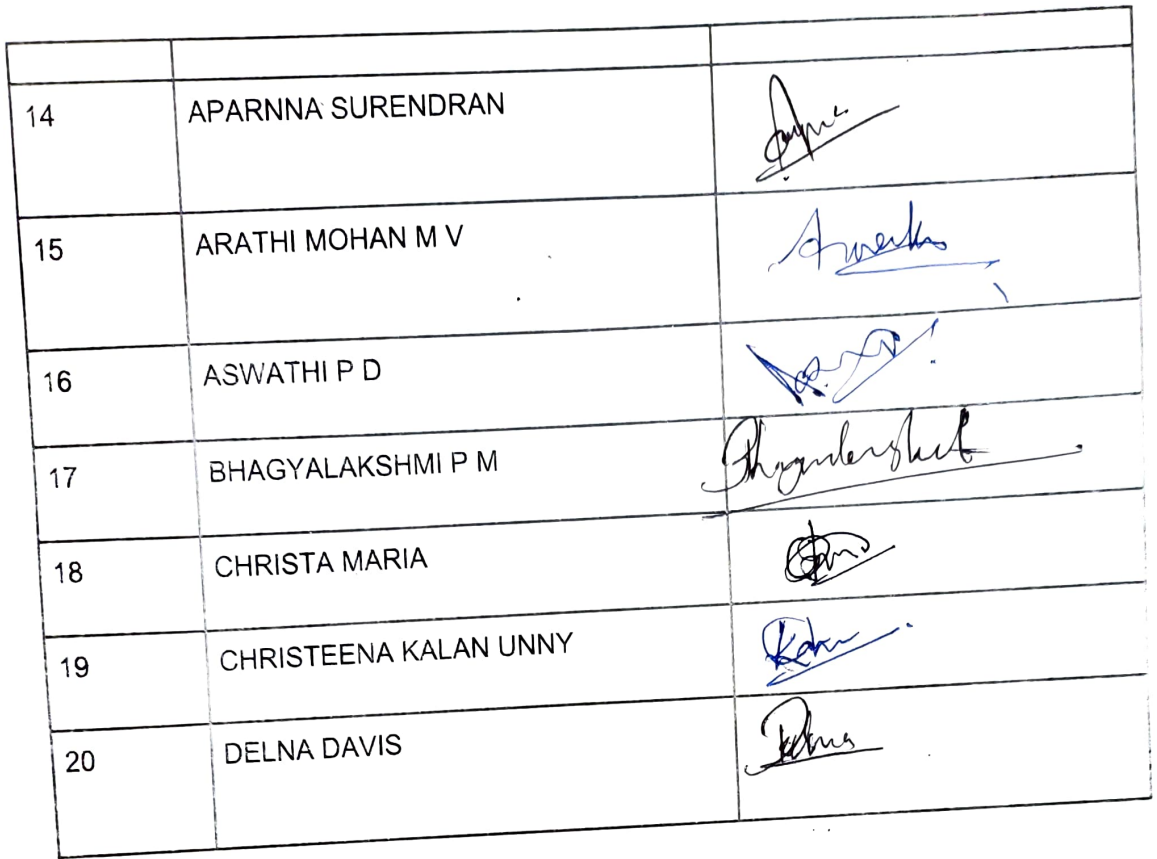 14 APARNNA SURENDRAN
15 ARATHI MOHAN M V
16 ASWATHI P D
17 BHAGYALAKSHMI P M
18 CHRISTA MARIA
19 CHRISTEENA KALAN UNNY
20 DELNA DAVIS